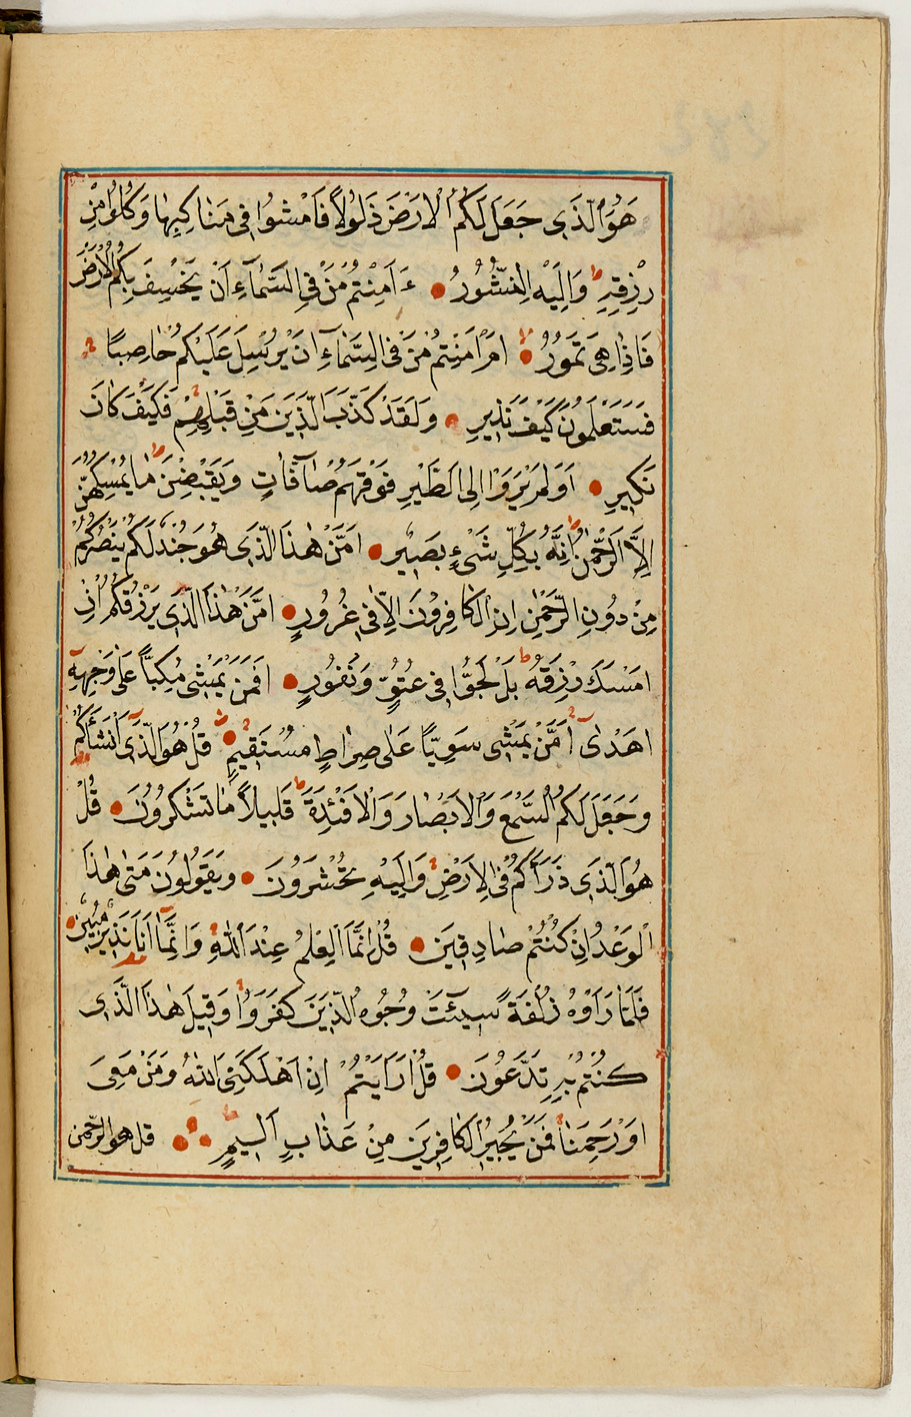 هُوَ الَّذِى جَعَلَ لَكُمُ الْاَرْضَ ذَلُولاً فَامْشُوا فِى مَنَاكِبِهَا وَكُلُوا مِنْ
رِزْقِهِ ط وَاِلَيْهِ النُّشُورُ ءَاَمِنْتُمْ مَنْ فِى السَّمَآءِ اَنْ يَخْسِفَ بِكُمُ الْاَرْضَ
فَاِذَا هِىَ تَمُورُ اَمْ اَمِنْتُمْ مَنْ فِى السَّمَآءِ اَنْ يُرْسِلَ عَلَيْكُمْ حَاصِبًا
فَسَتَعْلَمُونَ كَيْفَ نَذِيرِ وَلَقَدْ كَذَّبَ الَّذِينَ مِنْ قَبْلِهِمْ فَكَيْفَ كَانَ
نَكِيرِ اَوَلَمْ يَرَوْا اِلَى الطَّيْرِ فَوْقَهُمْ صَآفَّاتٍ وَيَقْبِضْنَ ط مَا يُمْسِكُهُنَّ
اِلاَّ الرَّحْمٰنُ ط اِنَّهُ بِكُلِّ شَىْءٍ بَصِيرٌ اَمَّنْ هٰذَا الَّذِى هُوَ جُنْدٌ لَكُمْ يَنْصُرُكُمْ
مِنْ دُونِ الرَّحْمٰنِ اِنِ الْكَافِرُونَ اِلاَّ فِى غُرُورٍ اَمَّنْ هٰذَا الَّذِى يَرْزُقُكُمْ اِنْ
اَمْسَكَ رِزْقَهُ ط بَلْ لَجُّوا فِى عُتُوٍّ وَنُفُورٍ اَفَمَنْ يَمْشِى مُكِبًّا عَلَى وَجْهِهِ
اَهْدٰىٓ اَمَّنْ يَمْشِى سَوِيًّا عَلَى صِرَاطٍ مُسْتَقِيمٍ قُلْ هُوَ الَّذِىٓ اَنْشَاَكُمْ
وَجَعَلَ لَكُمُ السَّمْعَ وَالْاَبْصَارَ وَالْاَفْئِدَةَ ط قَلِيلاً مَا تَشْكُرُونَ قُلْ
هُوَ الَّذِى ذَرَاَكُمْ فِى الْاَرْضِ وَاِلَيْهِ تُحْشَرُونَ وَيَقُولُونَ مَتٰى هٰذَا
الْوَعْدُ اِنْ كُنْتُمْ صَادِقِينَ قُلْ اِنَّمَا الْعِلْمُ عِنْدَ اللّٰهِ وَاِنَّمَآ اَنَا نَذِيرٌ مُبِينٌ
فَلَمَّا رَاَوْهُ زُلْفَةً سِيٓئَتْ وُجُوهُ الَّذِينَ كَفَرُوا وَقِيلَ هٰذَا الَّذِى
كُنْتُمْ بِهِ تَدَّعُونَ قُلْ اَرَاَيْتُمْ اِنْ اَهْلَكَنِىَ اللّٰهُ وَمَنْ مَعِىَ
اَوْ رَحِمَنَا فَمَنْ يُجِيرُ الْكَافِرِينَ مِنْ عَذَابٍ اَلِيمٍ قل هو الرحمن